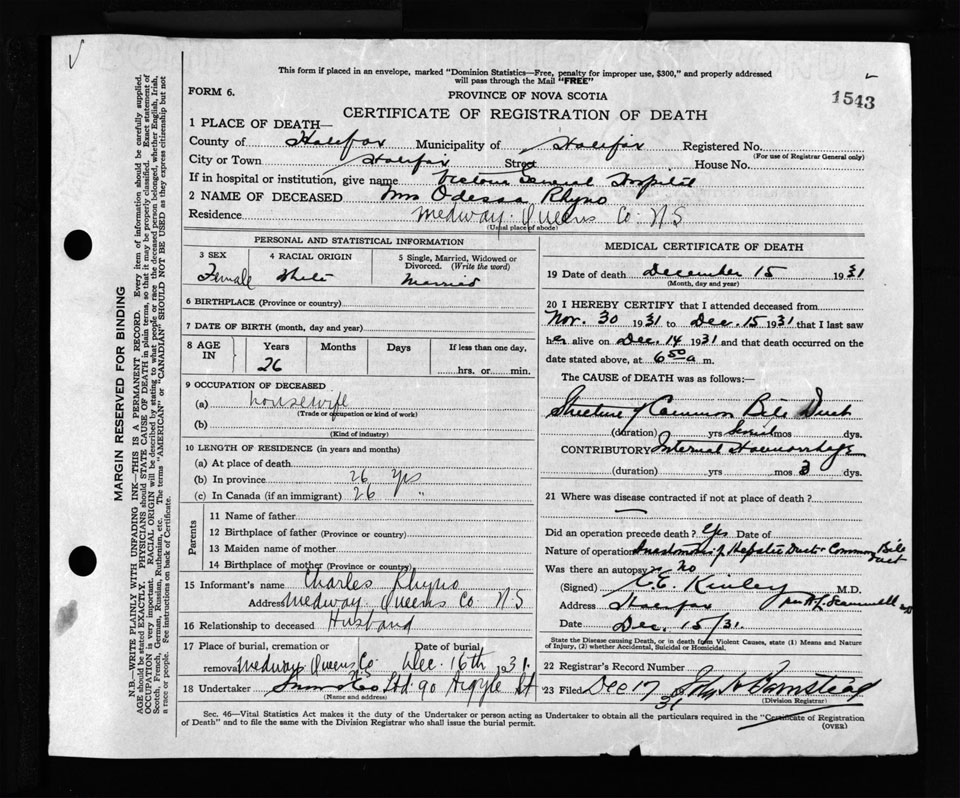 This form if placed in an envelope, marked "Dominion Statistics—Free, penalty for improper use, $300," and properly addressed
will pass through the Mail "FREE"
FORM 6.
PROVINCE OF NOVA SCOTIA
1543
CERTIFICATE OF REGISTRATION OF DEATH
1 PLACE OF DEATH—
County of Halifax Municipality of Halifax Registered No.
(For use of Registrar General only)
City or Town Halifax Street House No.
If in hospital or institution, give name Victoria General Hospital
2 NAME OF DECEASED Mrs Odessa Rhyno
Residence Medway Queens Co N S
(Usual place of abode)
PERSONAL AND STATISTICAL INFORMATION
3 SEX
Female
4 RACIAL ORIGIN
White
5 Single, Married, Widowed or
Divorced. (Write the word)
Married
6 BIRTHPLACE (Province or country)
7 DATE OF BIRTH (month, day and year)
8 AGE IN
Years Months Days If less than one day,
26 hrs. or min.
9 OCCUPATION OF DECEASED
(a) housewife
(Trade or occupation or kind of work)
(b)
(Kind of industry)
10 LENGTH OF RESIDENCE (in years and months)
(a) At place of death
(b) In province 26 yrs
(c) In Canada (if an immigrant) 26 "
Parents
11 Name of father
12 Birthplace of father (Province or country)
13 Maiden name of mother
14 Birthplace of mother (Province or country)
15 Informant's name Charles Rhyno
Address Medway Queens Co N S
16 Relationship to deceased Husband
17 Place of burial, cremation or Date of burial
removal Medway Queens Co NS Dec. 16th 1931
18 Undertaker Snow & Co Ltd 90 Argyle St
(Name and address)
MEDICAL CERTIFICATE OF DEATH
19 Date of death December 15 1931
(Month, day and year)
20 I HEREBY CERTIFY that I attended deceased from
Nov. 30 1931 to Dec. 15 1931 that I last saw
her alive on Dec. 14 1931 and that death occurred on the
date stated above, at 6 50 a m.
The CAUSE OF DEATH was as follows:—
Stricture of Common Bile Duct
(duration) yrs Several mos dys.
CONTRIBUTORY Internal Haemorrhage
(duration) yrs mos 3 dys.
21 Where was disease contracted if not at place of death?
Did an operation precede death? Yes Date of
Nature of operation Anastomosis of Hepatic Duct & Common Bile Duct
Was there an autopsy no
(Signed) C.E. Kinley M.D.
Address Halifax
Date Dec. 15/31.
State the Disease causing Death, or in death from Violent Causes, state (1) Means and Nature
of Injury, (2) whether Accidental, Suicidal or Homicidal.
22 Registrar's Record Number
23 Filed Dec 17 31
(Division Registrar)
Sec. 46—Vital Statistics Act makes it the duty of the Undertaker or person acting as Undertaker to obtain all the particulars required in the "Certificate of Registration
of Death" and to file the same with the Division Registrar who shall issue the burial permit.
(OVER)
MARGIN RESERVED FOR BINDING
N.B.—WRITE PLAINLY WITH UNFADING INK—THIS IS A PERMANENT RECORD. Every item of information should be carefully supplied.
AGE should be stated EXACTLY. PHYSICIANS should STATE CAUSE OF DEATH in plain terms, so that it may be properly classified. Exact statement of
OCCUPATION is very important. RACIAL ORIGIN will be described by stating to what people or race the deceased person belonged, whether English, Irish,
Scotch, French, German, Russian, Ruthenian, etc. The terms "AMERICAN" or "CANADIAN" SHOULD NOT BE USED as they express citizenship but not
a race or people. See instructions on back of Certificate.